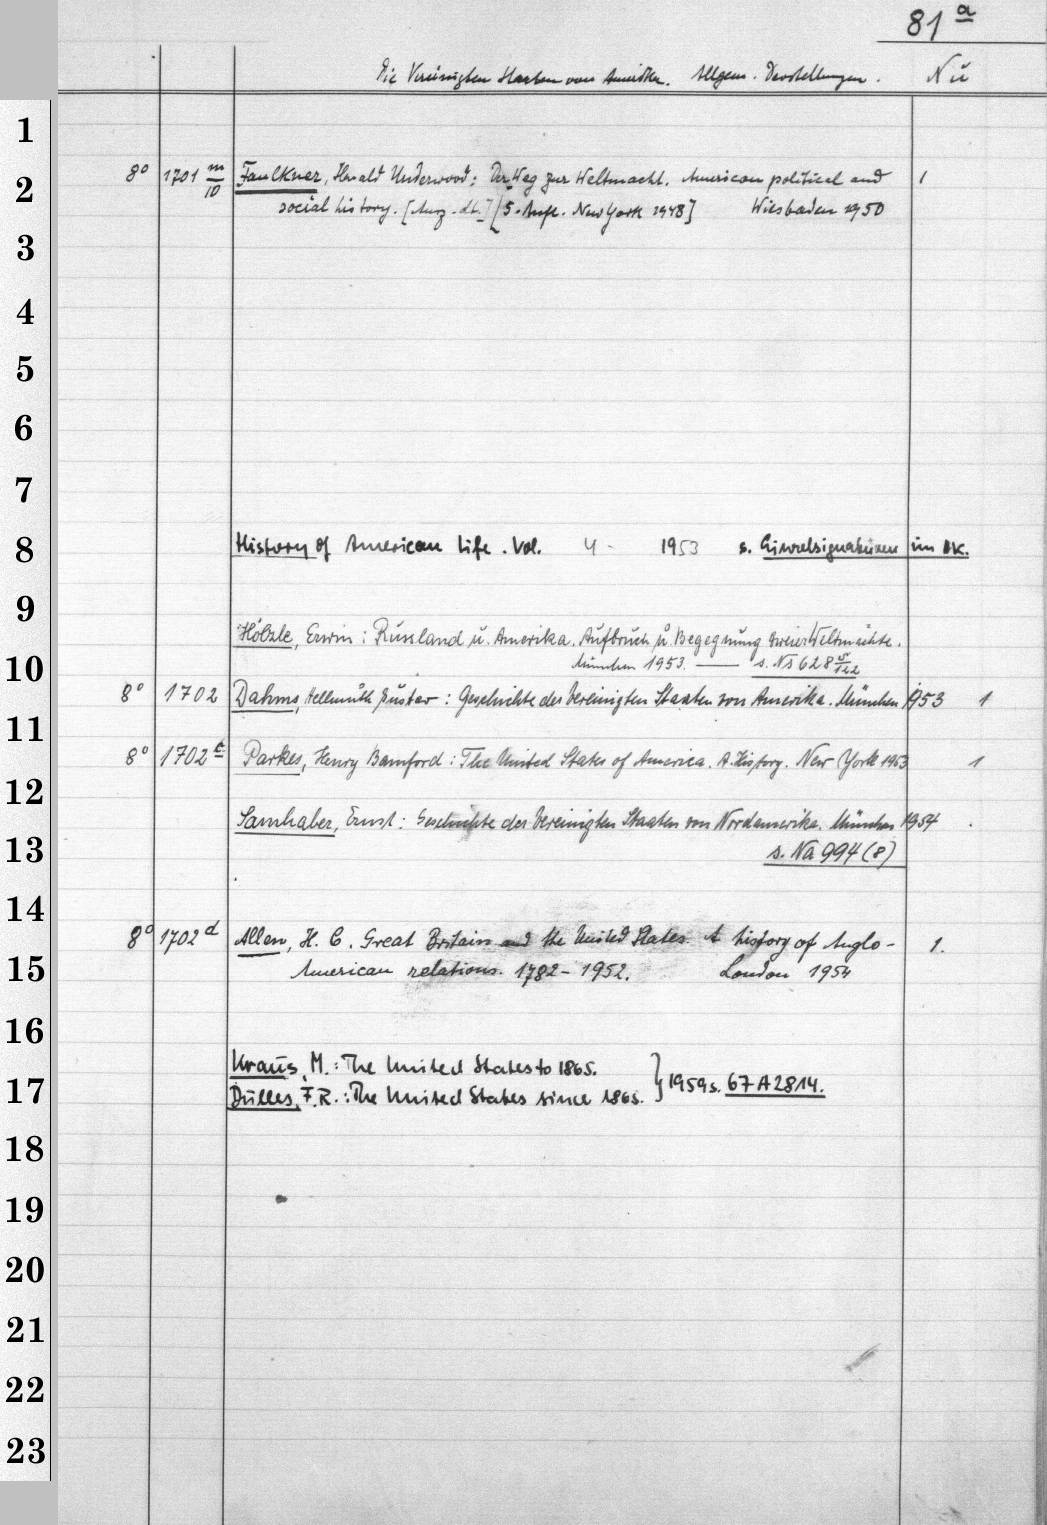 81 a
Die Vereinigten Staaten von Amerika. Allgem. Darstellungen. Nu
1
8° 1701 m/10 Faulkner, Harald Underwood: Der Weg zur Weltmacht. American political and 1
2
social history. [Ausz. dt.] [5. Aufl. New York 1948] Wiesbaden 1950
3
4
5
6
7
8 History of American Life. Vol. 4 - 1953 s. Einzelsignaturen im AK.
9
Hölzle, Erwin: Russland u. Amerika. Aufbruch u. Begegnung zweier Weltmächte.
10 München 1953. — s. Na 628
8° 1702 Dahms, Hellmuth Gustav: Geschichte der Vereinigten Staaten von Amerika. München 1953 1
11
8° 1702 c Parkes, Henry Bamford: The United States of America. A History. New York 1953 1
12
Samhaber, Ernst: Geschichte der Vereinigten Staaten von Nordamerika. München 1954
13 s. Na 994 (8)
14
8° 1702 d Allen, H. C. Great Britain and the United States. A history of Anglo- 1.
15 American relations. 1782-1952. London 1954
16
Kraus, M.: The United States to 1865.
17 } 1959 s. 67 A 2814.
Dulles, F. R.: The United States since 1865.
18
19
20
21
22
23